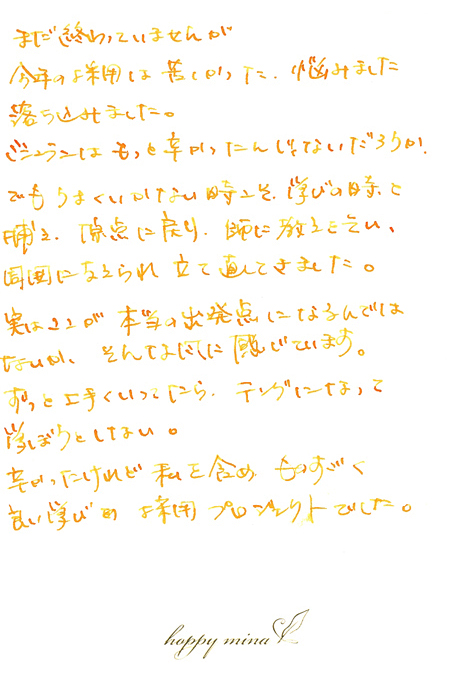 まだ終わっていませんが
今年の採用は苦しかった、悩みました
落ち込みました。
ビジュランはもっと辛かったんじゃないだろうか、
でもうまくいかない時こそ、学びの時と
捕え、原点に戻り、師に教えを乞い、
周囲に支えられ立て直してきました。
実はここが本当の出発点になるんでは
ないか、そんな風に感じています。
ずっと上手くいってたら、テングになって
学ぼうとしない。
辛かったけれど私を含め ものすごく
良い学びの採用プロジェクトでした。
happy mina